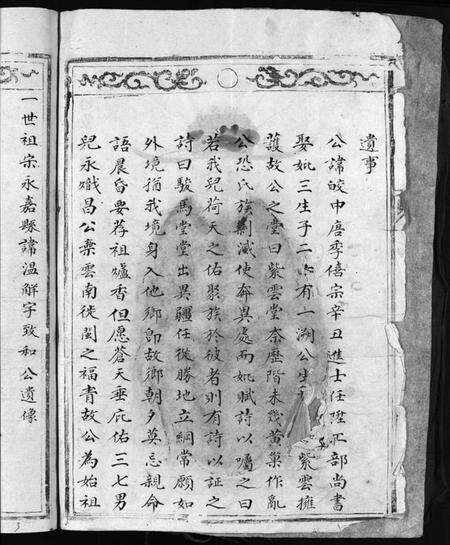 遺事
公諱皎中唐季僖宗辛丑進士任陞工部尚書
娶妣三生子二十有一溯公生 紫雲擁
護故公之堂曰紫雲堂奈歷階未幾黄巢作亂
公恐氏族勦滅使奔異處而妣賦詩以囑之曰
若我兒荷天之佑聚族於彼者則有詩以証之
詩曰駿馬堂堂出異疆任從勝地立綱常願如
外境猶我境身入他鄉即故鄉朝夕莫忘親命
語晨昏要荐祖爐香但愿蒼天垂庇佑三七男
兒永熾昌公棄雲南從閩之福青故公為始祖
一世祖宗永嘉縣諱温鮮字致和公遺像